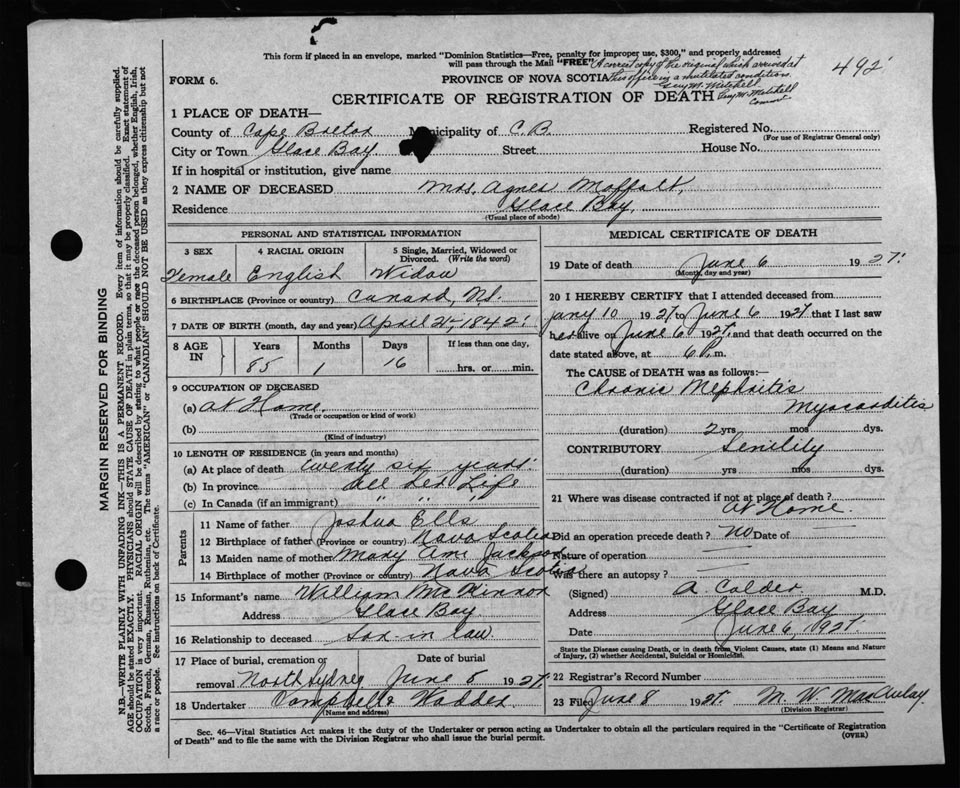 This form if placed in an envelope, marked "Dominion Statistics—Free, penalty for improper use, $300," and properly addressed
will pass through the Mail "FREE"
A correct copy of the original which arrived at
this office in a mutilated condition.
Guy M. Mitchell
492
FORM 6.
PROVINCE OF NOVA SCOTIA
CERTIFICATE OF REGISTRATION OF DEATH
1 PLACE OF DEATH—
County of Cape Breton Municipality of C.B. Registered No.
(For use of Registrar General only)
City or Town Glace Bay Street House No.
If in hospital or institution, give name
2 NAME OF DECEASED Mrs. Agnes Moffatt,
Residence Glace Bay,
(Usual place of abode)
PERSONAL AND STATISTICAL INFORMATION
3 SEX 4 RACIAL ORIGIN 5 Single, Married, Widowed or Divorced. (Write the word)
Female English Widow
6 BIRTHPLACE (Province or country) Canard, NS.
7 DATE OF BIRTH (month, day and year) April 21, 1842
8 AGE IN Years Months Days If less than one day,
85 1 16 hrs. or min.
9 OCCUPATION OF DECEASED
(a) At Home.
(Trade or occupation or kind of work)
(b)
(Kind of industry)
10 LENGTH OF RESIDENCE (in years and months)
(a) At place of death twenty six years
(b) In province All her Life
(c) In Canada (if an immigrant) " "
Parents
11 Name of father Joshua Ells
12 Birthplace of father (Province or country) Nova Scotia
13 Maiden name of mother Mary Ann Jackson
14 Birthplace of mother (Province or country) Nova Scotia
15 Informant's name William McKinnon
Address Glace Bay
16 Relationship to deceased Son-in law
17 Place of burial, cremation or removal North Sydney Date of burial June 8 1927.
18 Undertaker Campbell & Wadden
(Name and address)
MEDICAL CERTIFICATE OF DEATH
19 Date of death June 6 1927.
(Month, day and year)
20 I HEREBY CERTIFY that I attended deceased from
Jany 10 1927 to June 6 1927 that I last saw
her alive on June 6 1927, and that death occurred on the
date stated above, at 6 P.m.
The CAUSE of DEATH was as follows:—
Chronic Nephritis
Myocarditis
(duration) 2 yrs mos dys.
CONTRIBUTORY Senility
(duration) yrs mos dys.
21 Where was disease contracted if not at place of death?
At Home.
Did an operation precede death? No Date of
Nature of operation
Was there an autopsy?
(Signed) A. Calder M.D.
Address Glace Bay
Date June 6, 1927.
State the Disease causing Death, or in death from Violent Causes, state (1) Means and Nature of Injury, (2) whether Accidental, Suicidal or Homicidal.
22 Registrar's Record Number
23 File June 8 1927. M. W. MacAulay.
(Division Registrar)
Sec. 46—Vital Statistics Act makes it the duty of the Undertaker or person acting as Undertaker to obtain all the particulars required in the "Certificate of Registration
of Death" and to file the same with the Division Registrar who shall issue the burial permit. (OVER)
MARGIN RESERVED FOR BINDING
N.B.—WRITE PLAINLY WITH UNFADING INK—THIS IS A PERMANENT RECORD. Every item of information should be carefully supplied.
AGE should be stated EXACTLY. PHYSICIANS should STATE CAUSE OF DEATH in plain terms, so that it may be properly classified. Exact statement of
OCCUPATION is very important. RACIAL ORIGIN will be described by stating to what people or race the deceased person belonged, whether English, Irish,
Scotch, French, German, Russian, Ruthenian, etc. The terms "AMERICAN" or "CANADIAN" SHOULD NOT BE USED as they express citizenship but not
a race or people. See instructions on back of Certificate.